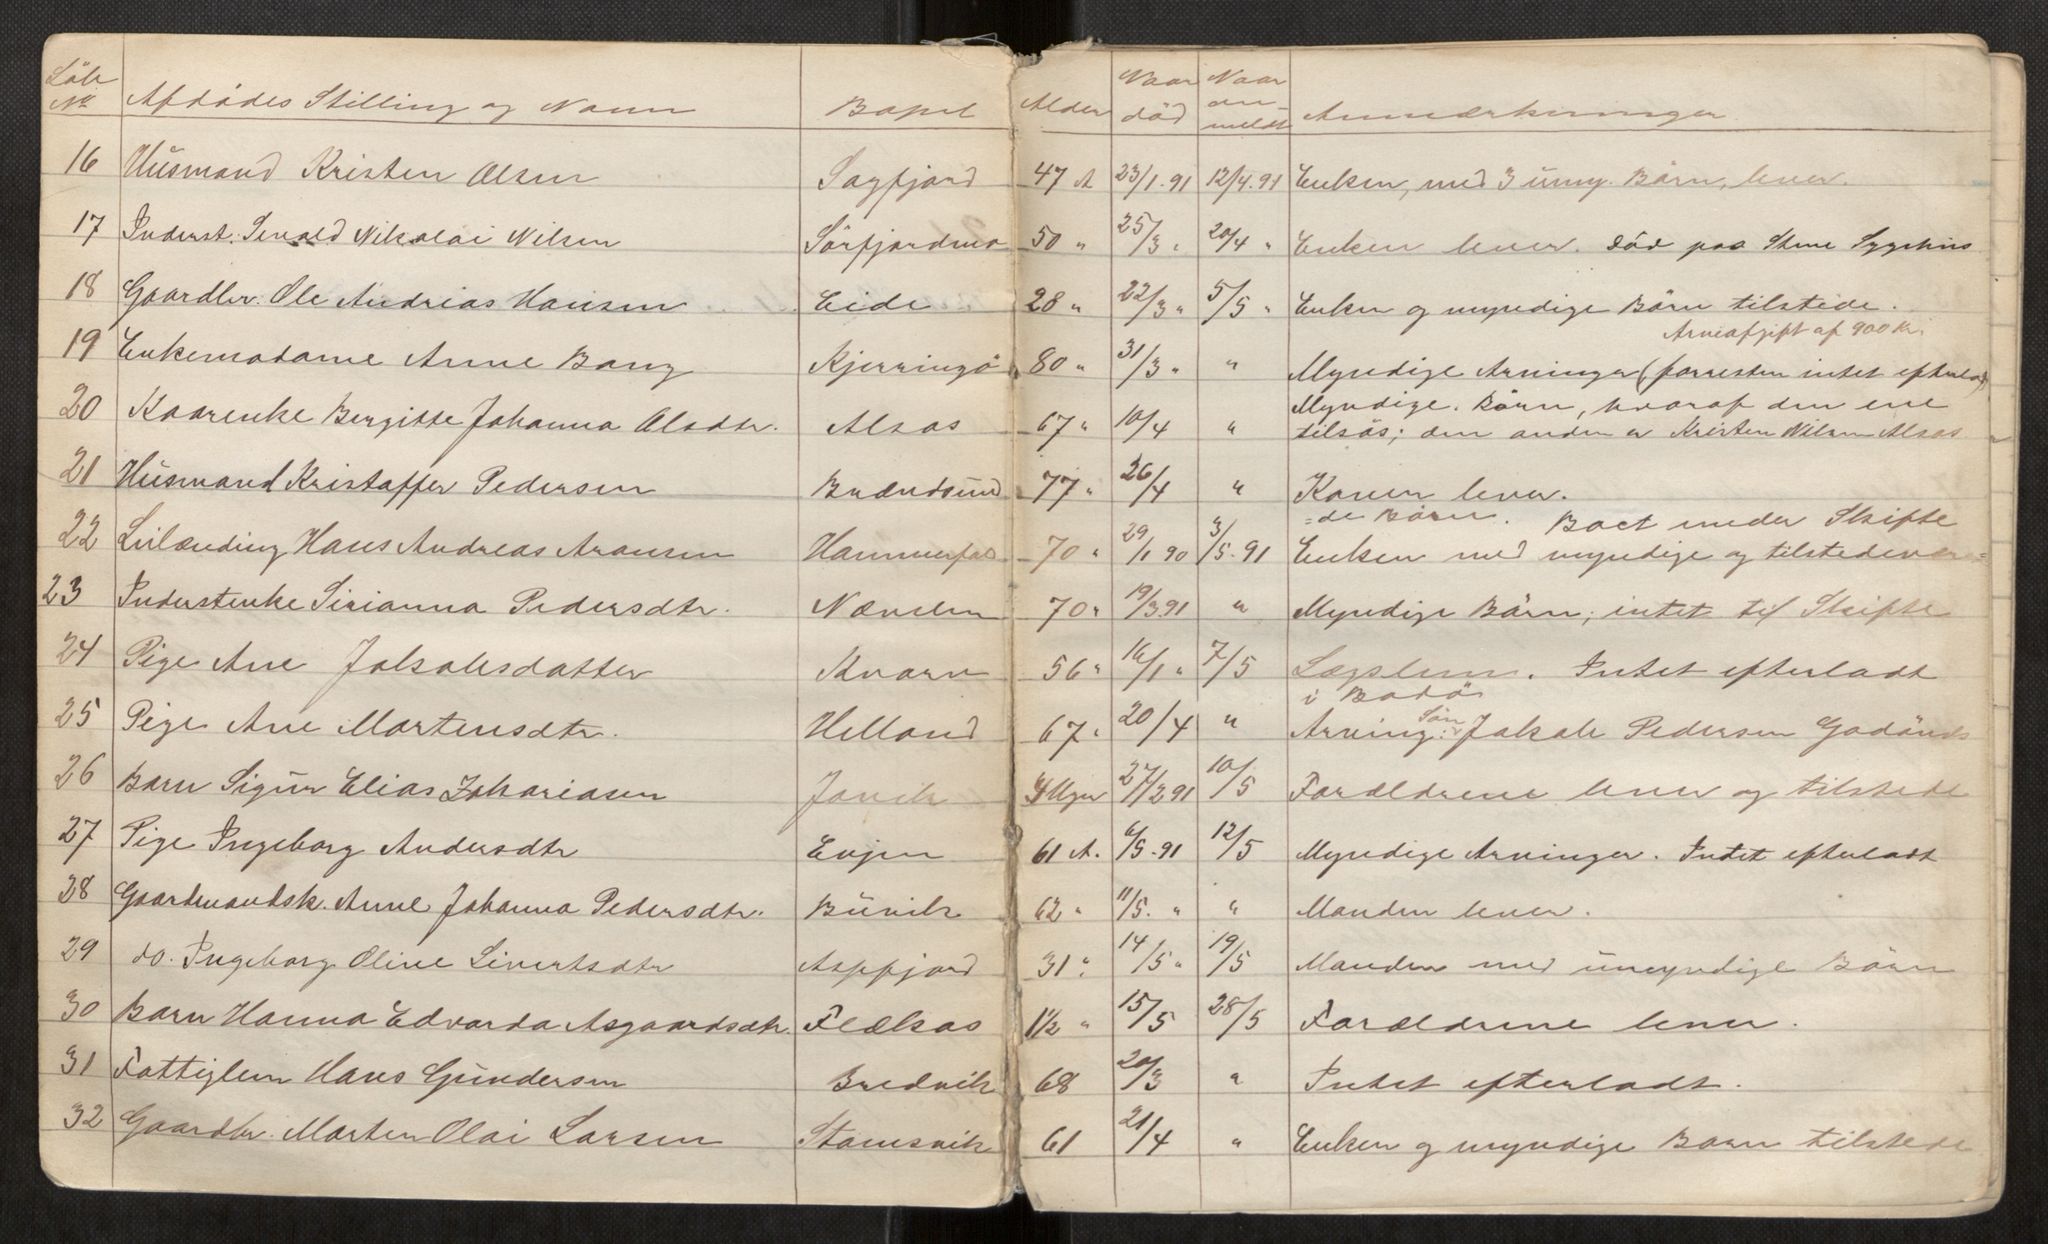 Löb No Afdødes Stilling og Navn Bopæl Alder Naar död Naar anmeldt Anmærkninger
16 Husmand Kristen Olsen Sagfjord 47 A 23/1.91 12/4.91 Enken, med 3 umy. Börn, lever.
17 Inderst. Sevald Nikolai Nilsen Sörfjordmo 50 " 25/3 " 20/4 " Enken lever. död paa Stene Sygehus
18 Gaardbr. Ole Andrias Hansen Eide 28 " 22/3 " 5/5 " Enken og myndige Börn tilstede.
Arveafgift af 900 Kr.
19 Enkemadame Anne Bang Kjerringö 80 " 31/3 " " Myndige Arvinger (forresten intet efterladt)
20 Kaarenke Bergitte Johanna Olsdtr. Alsos 67 " 10/4 " Myndige Börn, hvoraf den ene
tilsös; den anden er Kristen Nilsen Alsos
21 Husmand Kristoffer Pedersen Brændsund 77 " 26/4 " Konen lever.
=de Börn. Boet under Skifte
22 Leilænding Hans Andreas Aronsen Hammerfal 70 " 29/1 90 3/5.91 Enken med myndige og tilstedevær=
23 Inderstenke Sirianna Pedersdtr. Nævelsn 70 " 19/3.91 " Myndige Börn; intet til Skifte
24 Pige Ane Jakobsdatter Kvarv 56 " 16/1 " 7/5 Lægslem. Intet efterladt
i Bodö
25 Pige Ane Martensdtr. Helland 67 " 20/4 " Arving: Sön Jakob Pedersen Godönes
26 Barn Sigur Elias Zakariasen Javik 4 Uger 27/2 91 10/5 Forældrene lever og tilstede
27 Pige Ingeborg Andersdtr Evjen 61 A. 6/5.91 12/5 Myndige Arvinger. Intet efterladt
28 Gaardmandsk. Anne Johanna Pedersdtr. Buvik 62 " 11/5. " " Manden lever.
29 do. Ingeborg Oline Sivertsdtr Aspfjord 31 " 14/5 " 19/5 Manden med umyndige Börn
30 Barn Hanna Edvarda Asgaardsdtr. Flælsos 1½ " 15/5 28/5 Forældrene lever.
31 Fattiglem Hans Gundersen Bredvik 68 20/3 " Intet efterladt.
32 Gaardbr. Morten Olai Larsen Stamsvik 61 21/4 " Enken og myndige Barn tilstede